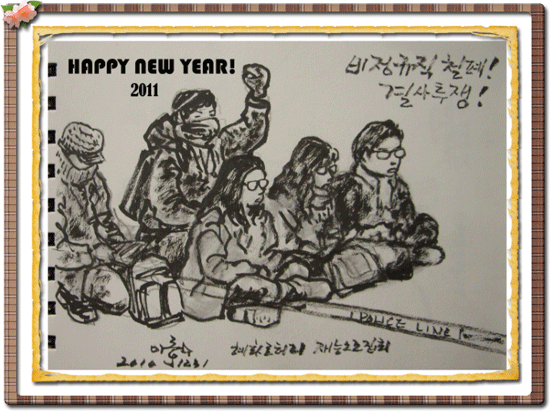 HAPPY NEW YEAR!
2011
비정규직 철폐!
결사투쟁!
POLICE LINE
2010 1231
혜화로터리 재능노조집회